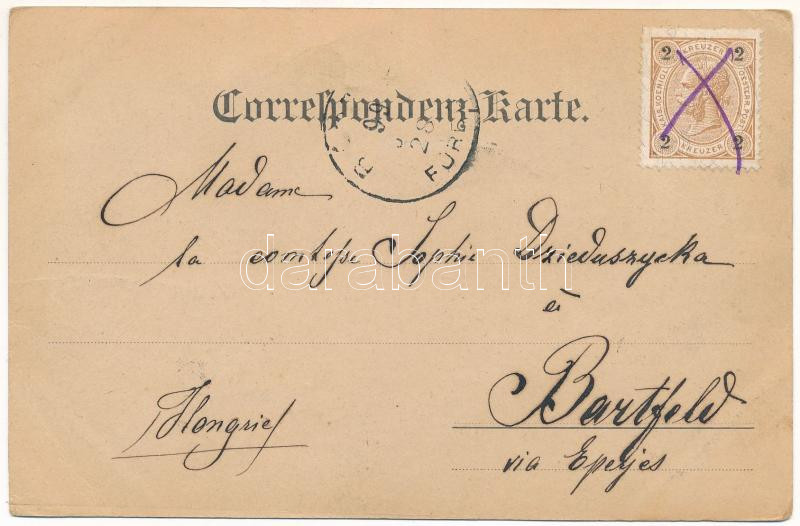 2 KREUZER 2
KAIS. KOENIGL. OESTERR. POST
2 KREUZER 2
Correspondenz-Karte.
99
28
FÜRD
Madame
la comtesse Sophie Dzieduszycka
à
Bartfeld
/Hongrie/
via Eperjes
darabanth